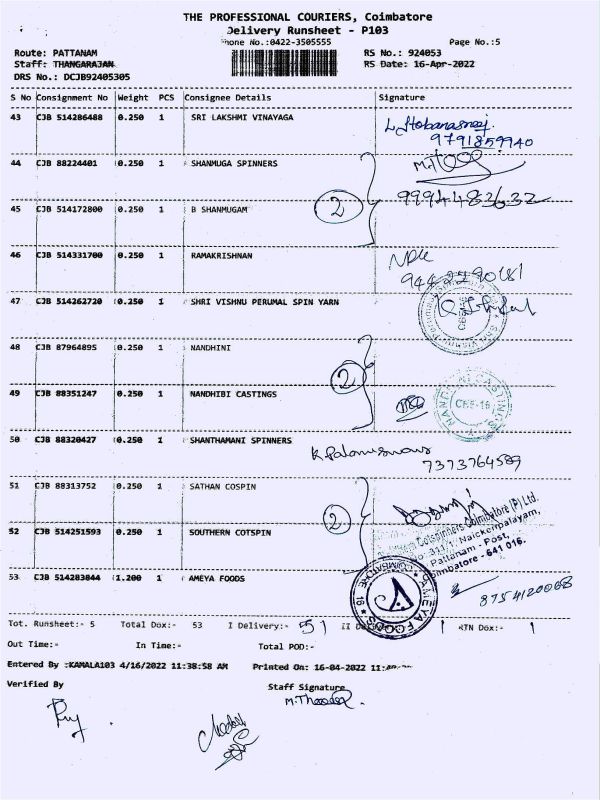 THE PROFESSIONAL COURIERS, Coimbatore
Delivery Runsheet - P103
Phone No.:0422-3505555 Page No.:5
Route: PATTANAM RS No.: 924053
Staff: THANGARAJAN RS Date: 16-Apr-2022
DRS No.: DCJB92405305
S No Consignment No Weight PCS Consignee Details Signature
43 CJB 514286488 0.250 1 SRI LAKSHMI VINAYAGA
9791859940
44 CJB 88224401 0.250 1 SHANMUGA SPINNERS
9994483632
2
45 CJB 514172800 0.250 1 B SHANMUGAM
46 CJB 514331700 0.250 1 RAMAKRISHNAN
9442290181
47 CJB 514262720 0.250 1 SHRI VISHNU PERUMAL SPIN YARN
48 CJB 87964895 0.250 1 NANDHINI
2
49 CJB 88351247 0.250 1 NANDHIBI CASTINGS
CBE-16
50 CJB 88320427 0.250 1 SHANTHAMANI SPINNERS
7373764589
51 CJB 88313752 0.250 1 SATHAN COSPIN
2
52 CJB 514251593 0.250 1 SOUTHERN COTSPIN
Cotspinners Coimbatore (P) Ltd.
311/1, Naickenpalayam,
Pattanam - Post,
Coimbatore - 641 016.
53 CJB 514283844 1.200 1 AMEYA FOODS
AMEYA FOODS COIMBATORE 16
8754120068
Tot. Runsheet:- 5 Total Dox:- 53 I Delivery:- 51 II RTN Dox:- 1
Out Time:- In Time:- Total POD:-
Entered By :KAMALA103 4/16/2022 11:38:58 AM Printed On: 16-04-2022
Verified By Staff Signature